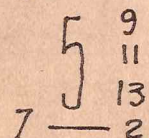 9
5 11
13
7 — 2